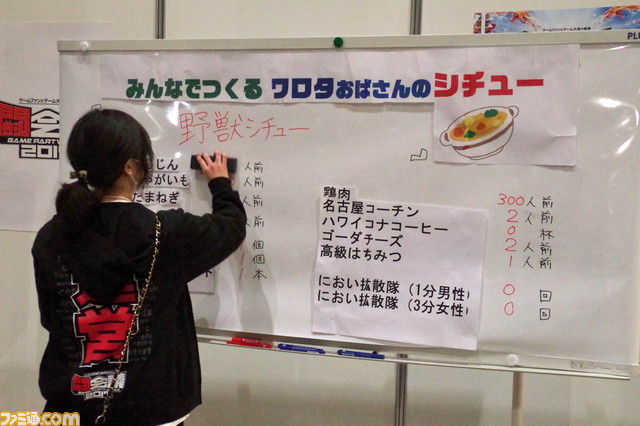 みんなでつくる ワロタおばさんのシチュー
野獣シチュー
じん 人前
がいも 人前
たまねぎ 人前
人前
個
個
本
鶏肉 300人前
名古屋コーチン 2人前
ハワイコナコーヒー 0杯
ゴーダチーズ 2人前
高級はちみつ 1人前
におい拡散隊 (1分男性) 0回
におい拡散隊 (3分女性) 0回
闘会議
GAME PARTY
運営
闘会議
ファミ通.com